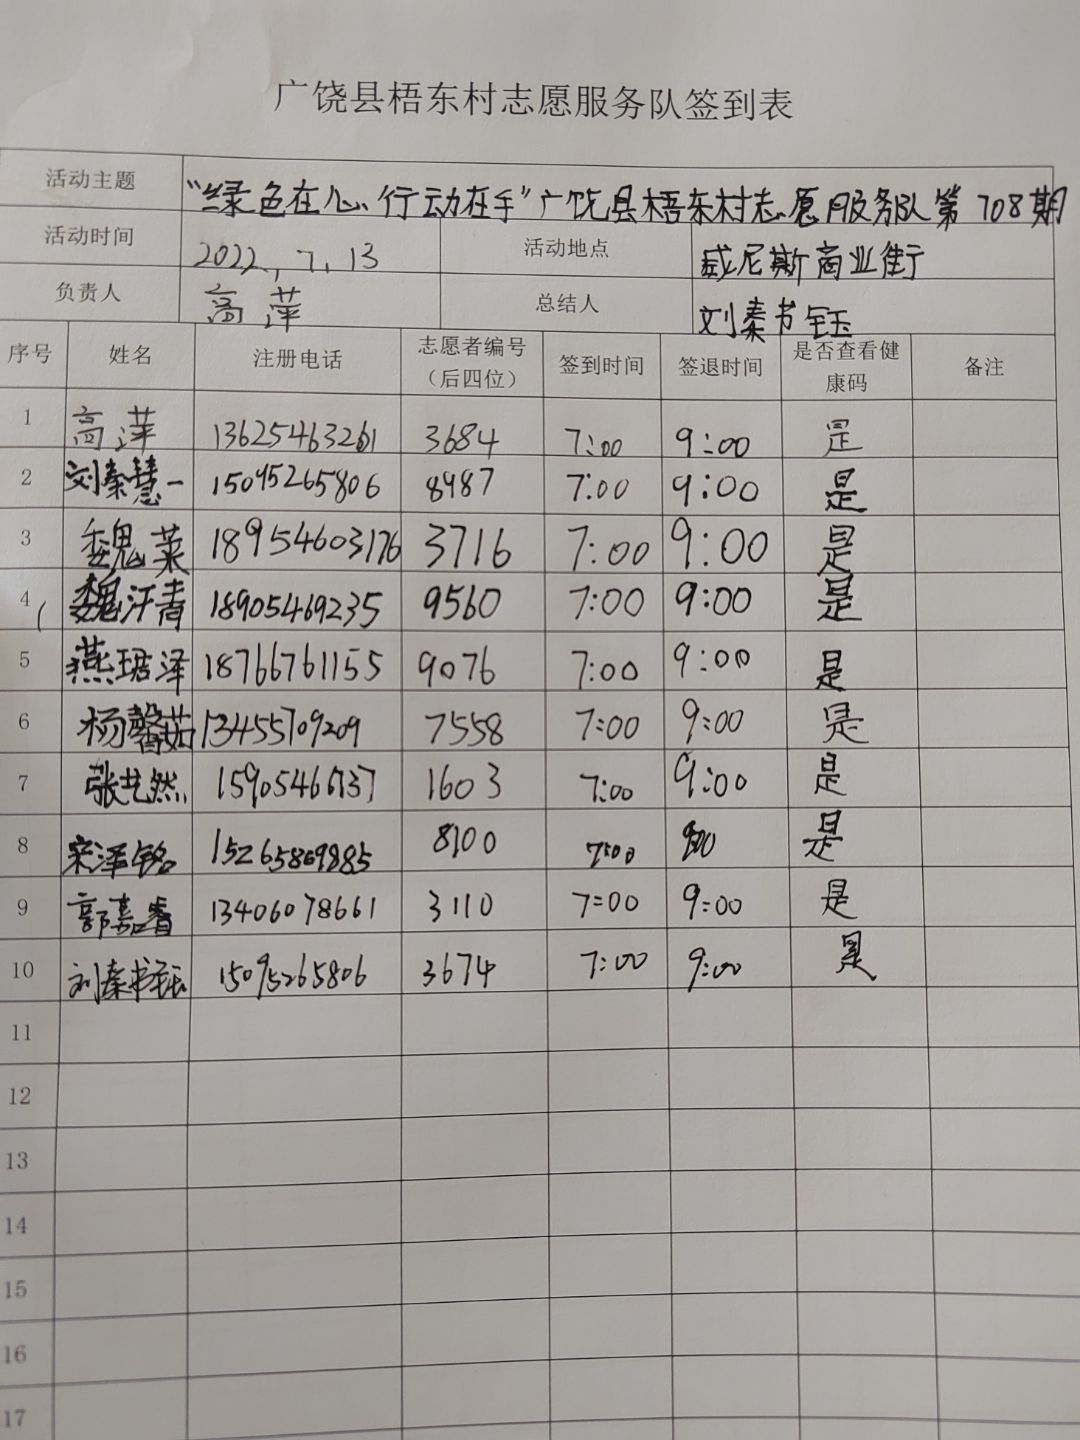 广饶县梧东村志愿服务队签到表
活动主题 “绿色在心、行动在手”广饶县梧东村志愿服务队第708期
活动时间 2022.7.13 活动地点 威尼斯商业街
负责人 高萍 总结人 刘秦书钰
序号 姓名 注册电话 志愿者编号（后四位） 签到时间 签退时间 是否查看健康码 备注
1 高萍 13625463261 3684 7:00 9:00 是
2 刘秦慧一 15095265806 8987 7:00 9:00 是
3 魏菜 18954603176 3716 7:00 9:00 是
4 魏汗青 18905469235 9560 7:00 9:00 是
5 燕珺泽 18766761155 9076 7:00 9:00 是
6 杨馨茹 13455709209 7558 7:00 9:00 是
7 张艺然 15905466737 1603 7:00 9:00 是
8 宋泽铭 15265869885 8100 7:00 9:00 是
9 郭嘉睿 13406078661 3110 7:00 9:00 是
10 刘秦书钰 15095265806 3674 7:00 9:00 是
11
12
13
14
15
16
17